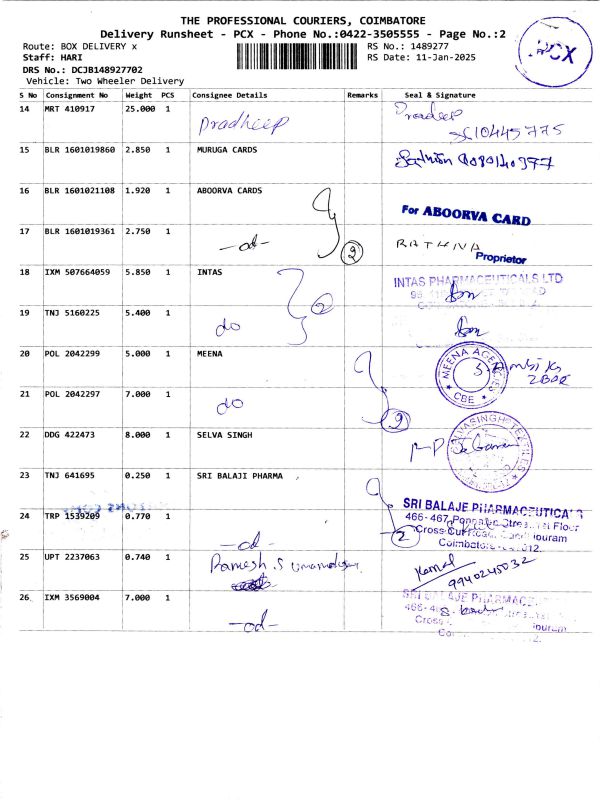 THE PROFESSIONAL COURIERS, COIMBATORE
Delivery Runsheet - PCX - Phone No.:0422-3505555 - Page No.:2
Route: BOX DELIVERY x
RS No.: 1489277
Staff: HARI
RS Date: 11-Jan-2025
DRS No.: DCJB148927702
Vehicle: Two Wheeler Delivery
PCX
S No Consignment No Weight PCS Consignee Details Remarks Seal & Signature
14 MRT 410917 25.000 1 Pradheep Pradeep
15 BLR 1601019860 2.850 1 MURUGA CARDS
16 BLR 1601021108 1.920 1 ABOORVA CARDS For ABOORVA CARD
17 BLR 1601019361 2.750 1 -do- 2 RATHNA
Proprietor
18 IXM 507664059 5.850 1 INTAS 2 INTAS PHARMACEUTICALS LTD
19 TNJ 5160225 5.400 1 do
20 POL 2042299 5.000 1 MEENA MEENA AGENCIES CBE
21 POL 2042297 7.000 1 do
22 DDG 422473 8.000 1 SELVA SINGH SELVASINGH TEXTILES
23 TNJ 641695 0.250 1 SRI BALAJI PHARMA
SRI BALAJE PHARMACEUTICA
24 TRP 1539209 0.770 1 -do- 2 466-467, Street, 1st Floor
Cross Cut Road
Coimbatore
25 UPT 2237063 0.740 1 Ramesh.S Kamal
9940245032
26 IXM 3569004 7.000 1 -do- SRI BALAJE PHARMAC
Cross